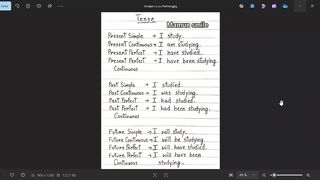 Tense
Mamun smile
Present Simple → I study.
Present Continuous → I am studying.
Present Perfect → I have studied.
Present Perfect → I have been studying.
Continuous
Past Simple → I studied.
Past Continuous → I was studying.
Past Perfect → I had studied.
Past Perfect → I had been studying.
Continuous
Future Simple → I will study.
Future Continuous → I will be studying.
Future Perfect → I will have studied.
Future Perfect → I will have been
Continuous studying.